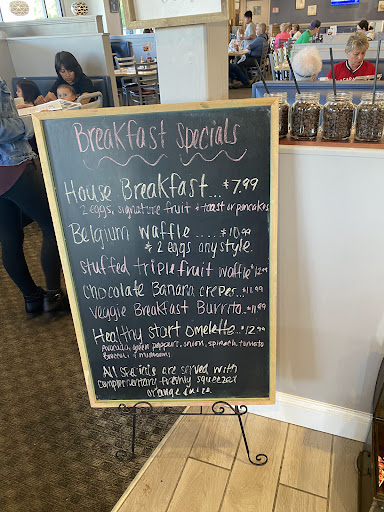 Breakfast Specials
House Breakfast... $7.99
2 eggs, signature fruit & toast or pancakes
Belgium waffle .... $10.99
& 2 eggs any style.
Stuffed triple fruit waffle $12.99
Chocolate Banana crepes... $11.99
Veggie Breakfast Burrito.. $11.99
Healthy start omelette... $12.99
Avocado, green peppers, onion, spinach, tomato
Broccoli & mushrooms
All specials are served with
complimentary freshly squeezed
orange juice